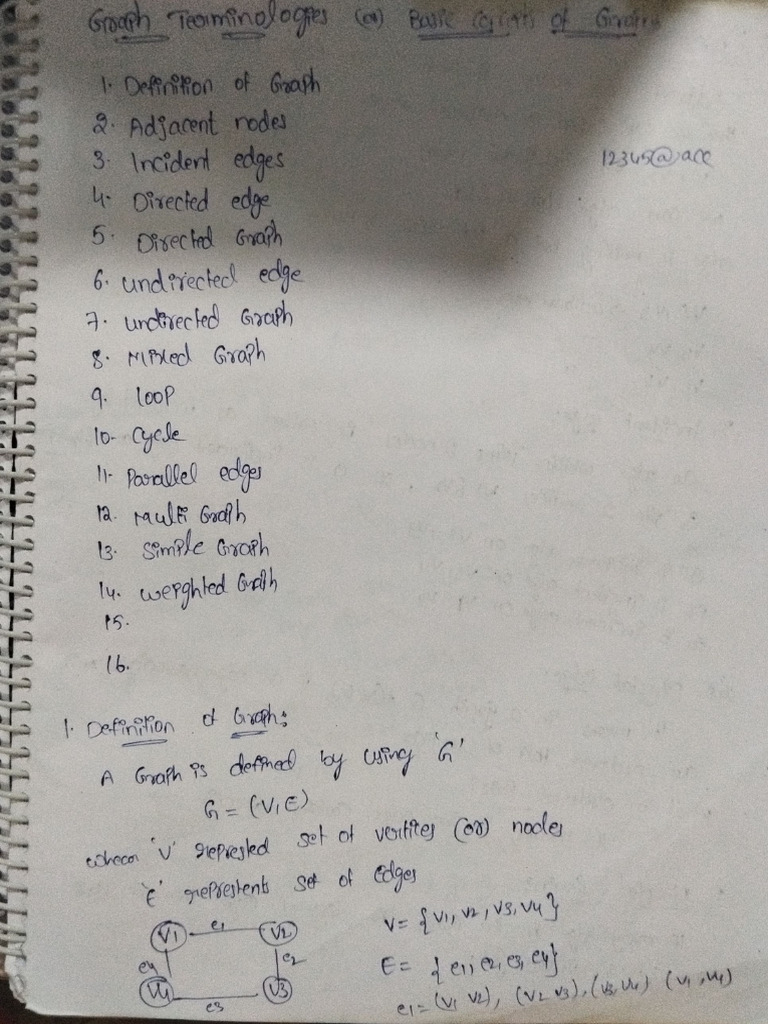 Graph Terminologies (or) Basic of Graph
1. Definition of Graph
2. Adjacent nodes
3. Incident edges
12345@ace
4. Directed edge
5. Directed Graph
6. undirected edge
7. undirected Graph
8. Mixed Graph
9. loop
10. Cycle
11. Parallel edges
12. Multi Graph
13. Simple Graph
14. weighted Graph
15.
16.
1. Definition of Graph:
A Graph is defined by using 'G'
G = (V, E)
'V' represted set of vertites (or) nodes
'E' represtents set of edges
V1 e1 V2
e4 e2
V4 e3 V3
V = {V1, V2, V3, V4}
E = {e1, e2, e3, e4}
e1 = (V1 V2), (V2 V3), (V3, V4) (V1, V4)